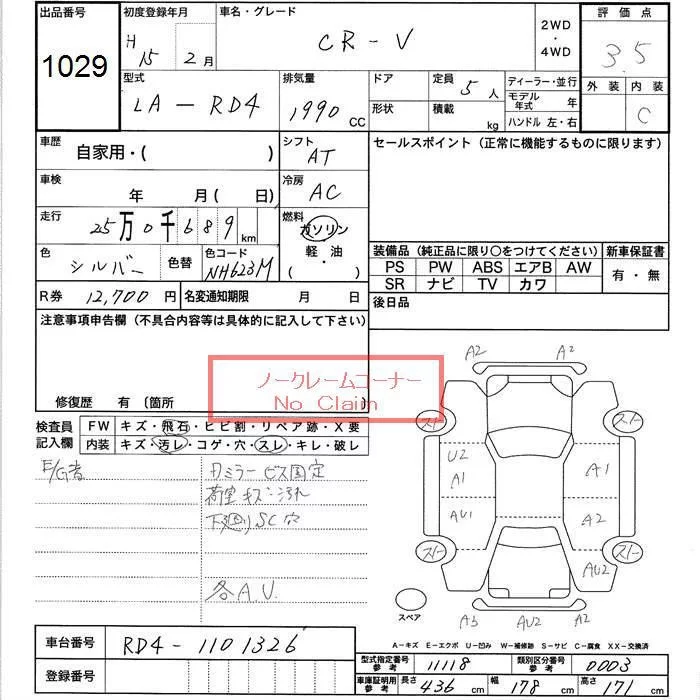 出品番号 初度登録年月 車名・グレード 評価点
1029 H 15 年 2 月 CR-V 2WD・4WD 3.5
外装 内装
C
型式 排気量 ドア 定員 ディーラー・並行
LA-RD4 1990 CC 5 人 モデル年式 年
形状 積載 kg ハンドル 左・右
車歴 シフト セールスポイント (正常に機能するものに限ります)
自家用・( ) AT
車検 冷房
年 月 ( 日) AC
走行 燃料
25万0千689 km ガソリン
軽・油
( ・ )
色 色替 色コード 装備品 (純正品に限り○をつけてください) 新車保証書
シルバー NH623M PS PW ABS エアB AW 有・無
SR ナビ TV カワ
R券 12,700 円 名変通知期限 月 日 後日品
注意事項申告欄 (不具合内容等は具体的に記入して下さい)
ノークレームコーナー
No Claim
修復歴 有 〔箇所
検査員記入欄 FW キズ・飛石・ヒビ割・リペア跡・X要
内装 キズ・汚レ・コゲ・穴・スレ・キレ・破レ
E/G音 ミラービス固定
荷室キズ・汚れ
下廻りSC穴
各A.U.
A2 A2
スレ スレ
U2
A1 A1
AU1 A2
スレ スレ
AU2
スペア
A3 AU2 A2
A-キズ E-エクボ U-凹み W-補修跡 S-サビ C-腐食 XX-交換済
車台番号 RD4-1101326
登録番号
型式指定番号参考 11118 類別区分番号参考 0003
車庫証明用参考 長さ 436 cm 幅 178 cm 高さ 171 cm